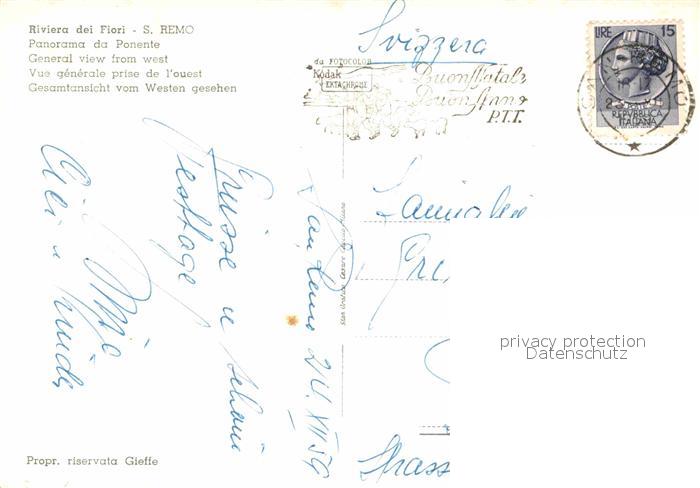 Riviera dei Fiori - S. REMO
Panorama da Ponente
General view from west
Vue générale prise de l'ouest
Gesamtansicht vom Westen gesehen
Svizzera
da FOTOCOLOR
Kodak
EKTACHROME
Buon Natale
Buon Anno
P.T.T.
LIRE 15
REPUBBLICA
ITALIANA
Familie
Grüsse u schöne
Festtage
San Remo
Strass
privacy protection
Datenschutz
Propr. riservata Gieffe